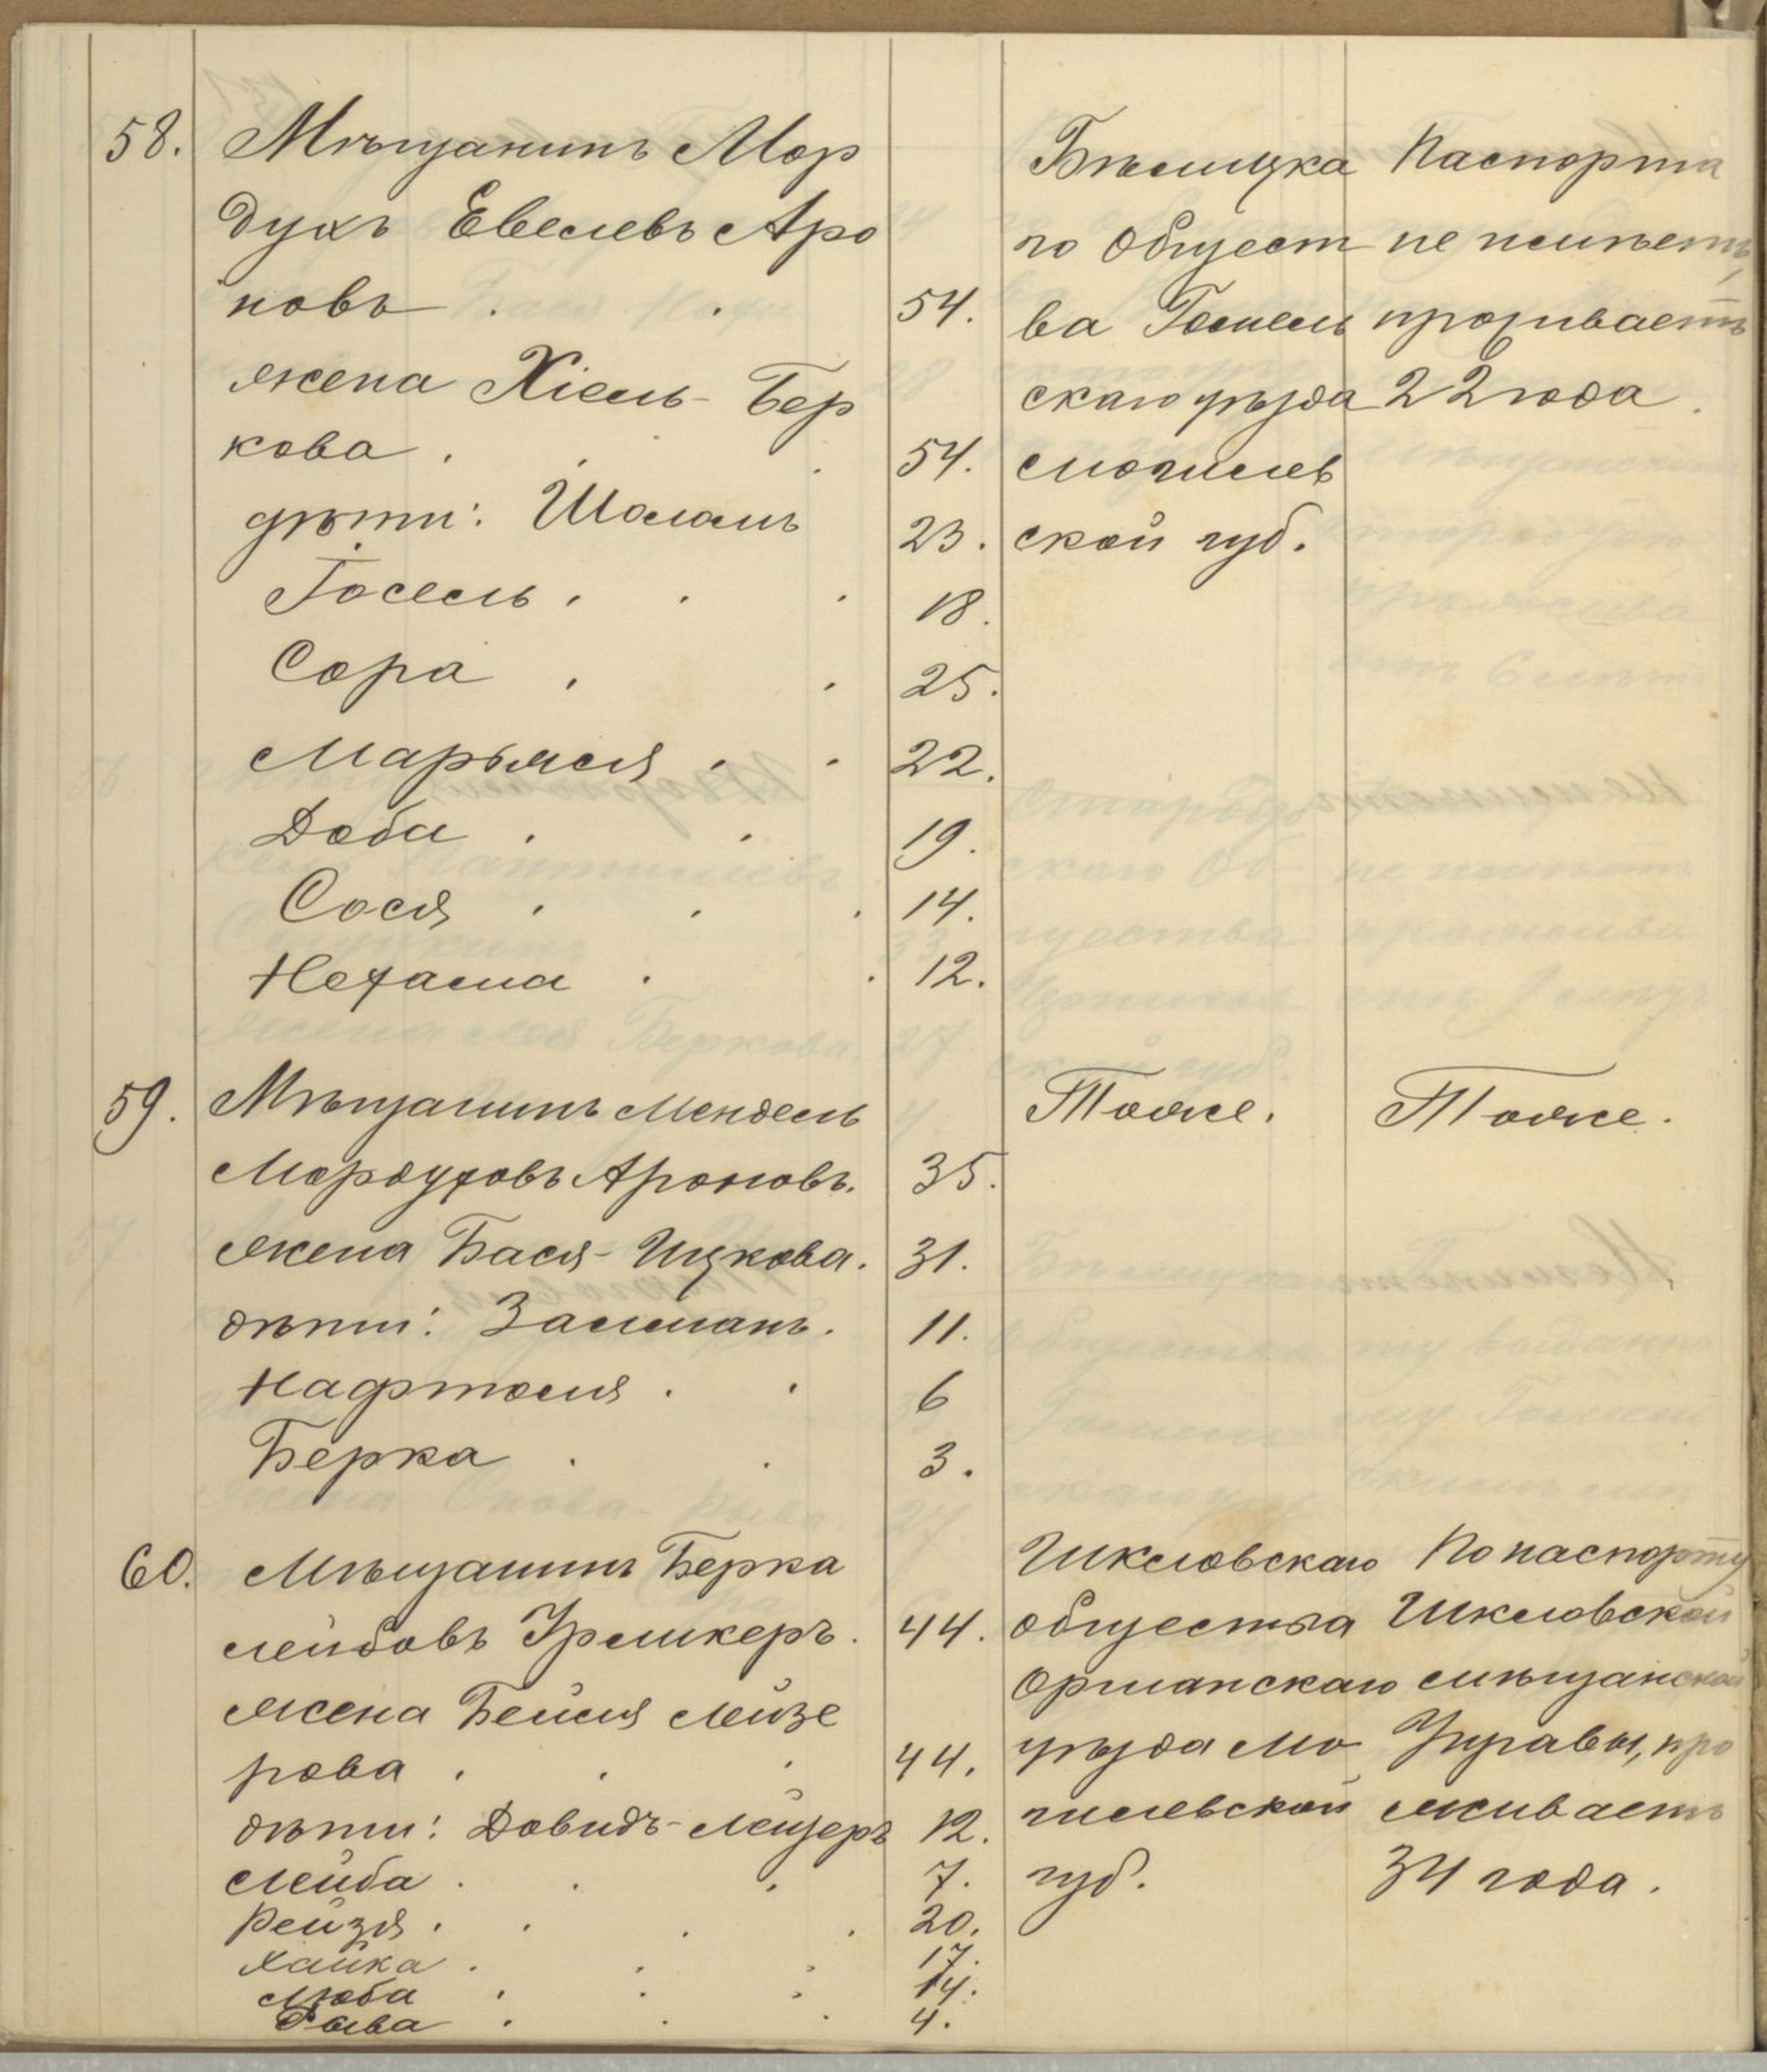 58. Мѣщанинъ Мор
духъ Евелевъ Аро
новъ . . 54.
жена Хіель- Бер
кова . . . 54.
дѣти: Шоломъ 23.
Іосель . . . 18.
Сора . . 25.
Марьяся . . 22.
Доба . . 19.
Сося . . . 14.
Нехама . . 12.
Бѣлицка
го Общест
ва Гомель
скаго уѣзда
Могилев
ской губ.
Паспорта
не имѣетъ,
прозивает
22 года.
59. Мѣщанинъ Мендель
Мордуховъ Ароновъ. 35.
жена Бася- Ицкова. 31.
дѣти: Залманъ. 11.
Нафтоля . . 6
Берка . . 3.
Тоже.
Тоже.
60. Мѣщанинъ Берка
Лейбовъ 44.
жена Бейля Лейзе
рова . . . 44.
дѣти: Довидъ-Лейзеръ 12.
Лейба . . . 7.
Рейзя . . . . 20.
Хайка . . . 17.
Люба . . . 14.
Рыва . . . 4.
Шкловскаго
общества
Оршанскаго
уѣзда Мо
гилевской
губ.
По паспорту
Шкловской
мѣщанской
Управы, про
живаетъ
34 года.